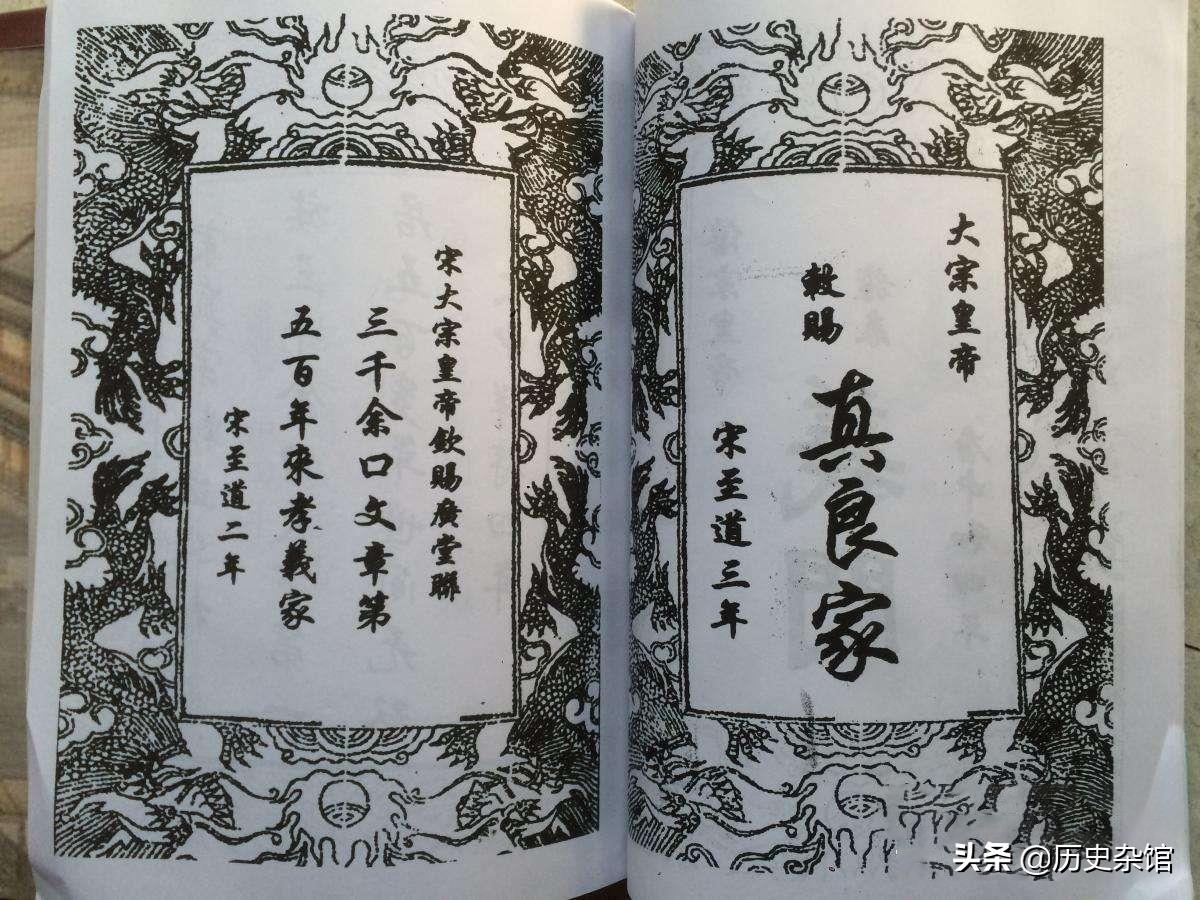 大宗皇帝
敕賜
真良家
宋至道三年
宋大宗皇帝欽賜廣堂聯
三千余口文章第
五百年來孝義家
宋至道二年
头条 @历史杂馆